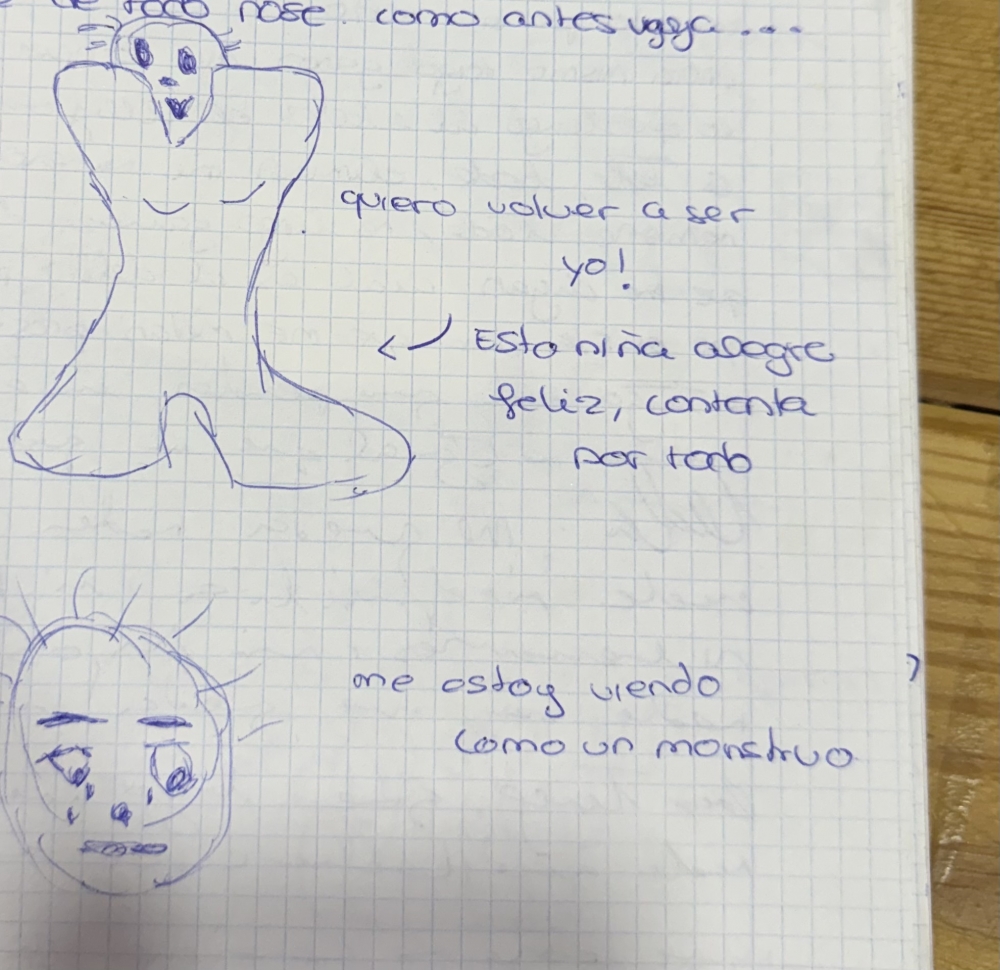 de todo nose. como antes ugga ...
quiero volver a ser
yo!
Esta niña alegre
feliz, contenta
por todo
me estoy viendo
como un monstruo